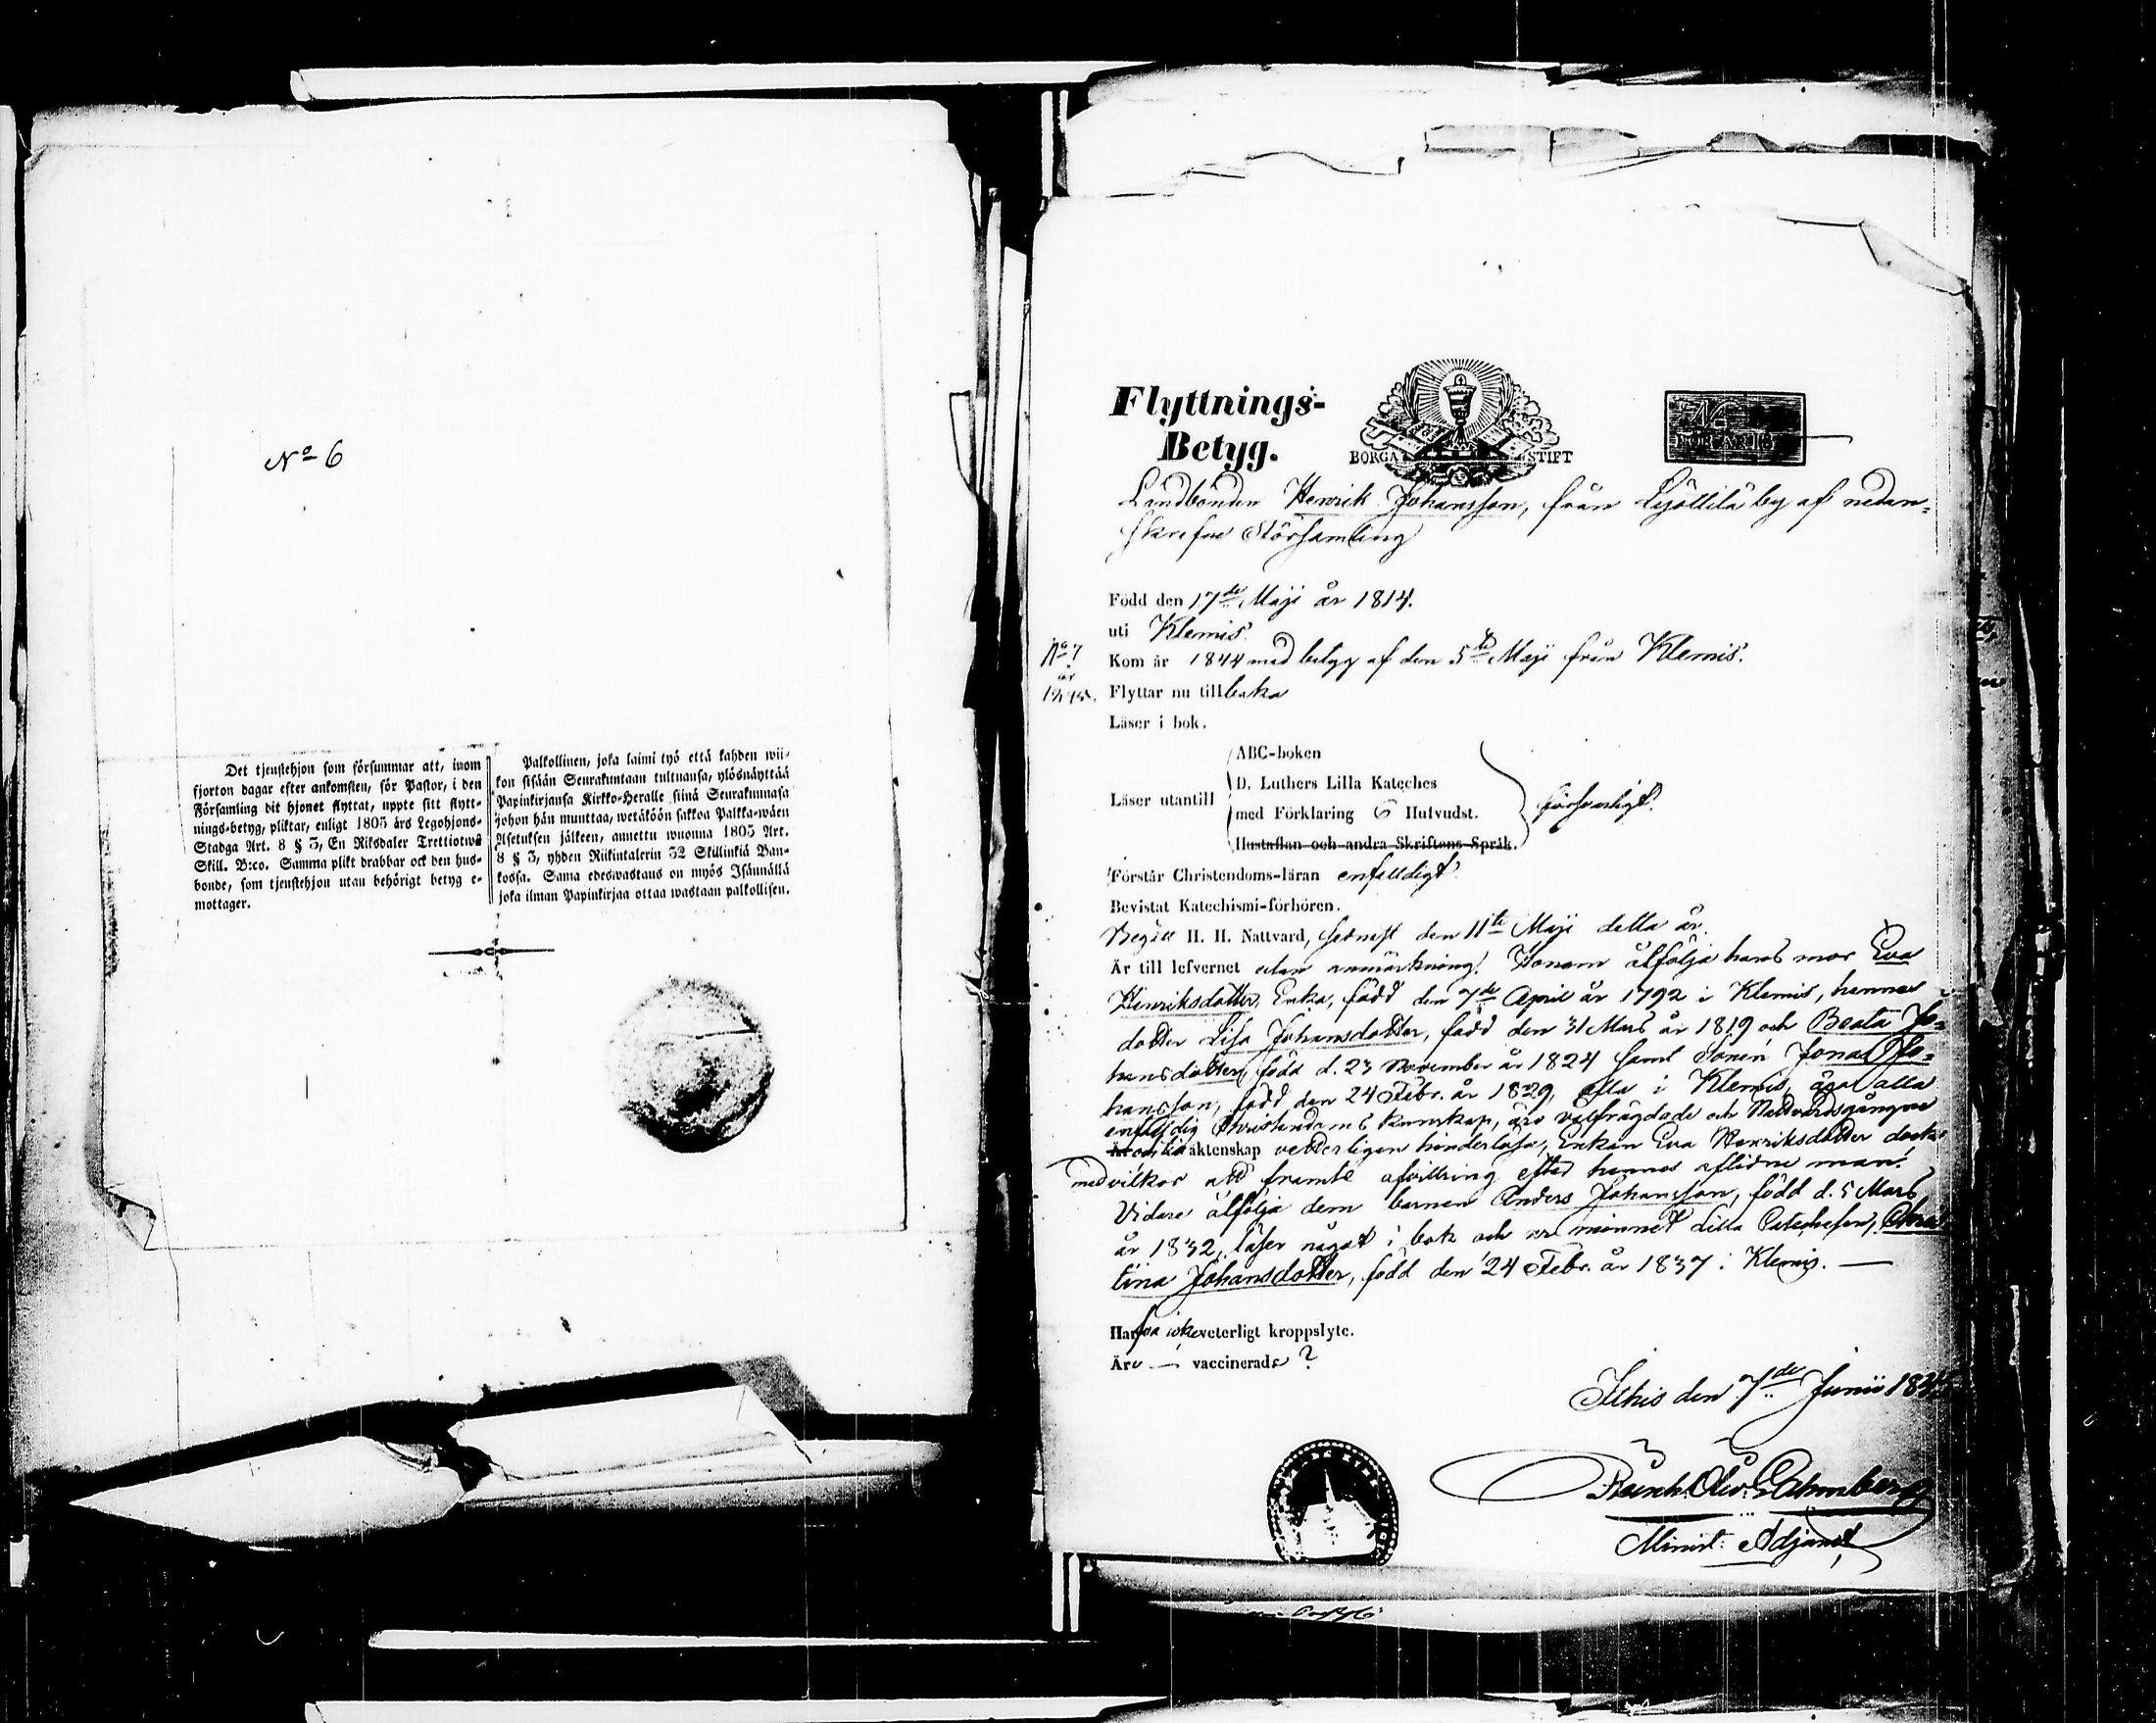 No 6
Det tjenstehjon som försummar att, inom
fjorton dagar efter ankomsten, för Pastor, i den
Församling dit hjonet flyttat, uppte sitt flytt-
nings-betyg, pliktar, enligt 1805 års Legohjons-
Stadga Art. 8 § 3, En Riksdaler Trettiotwå
Skill. B:co. Samma plikt drabbar ock den hus-
bonde, som tjenstehjon utan behörigt betyg e-
mottager.
Palkollinen, joka laimi lyö että kahden wii-
kon sisään Seurakuntaan tultuansa, ylösnäyttää
Papinkirjansa Kirkko-Heralle siinä Seurakunnasa
johon hän muuttaa, wetäköön sakkoa Palkka-wäen
Asetuksen jälkeen, annettu wuonna 1805 Art.
8 § 3, yhden Riikintalerin 32 Skillinkiä Ban-
kossa. Sama edeswastaus on myös Isännällä
joka ilman Papinkirjaa ottaa wastaan palkollisen.
Flyttnings-
Betyg.
BORGÅ STIFT
Landbonden Henrik Johansson, från by af nedan-
skrefne Församling
Född den 17de Maji år 1814.
uti Klemis.
No 7
Kom år 1844 med betyg af den 5te Maji från Klemis.
Flyttar nu tillbaka
Läser i bok.
Läser utantill
ABC-boken
D. Luthers Lilla Kateches
med Förklaring 6 Hufvudst.
Hustaflan och andra Skriftens Språk.
försvarligt.
Förstår Christendoms-läran enfaldigt
Bevistat Katechismi-förhören.
Begått H. H. Nattvard, sednast den 11te Maji detta år.
Är till lefvernet utan anmärkning. Honom åtfölja hans mor Eva
Henriksdotter, Enka, född den 7de April år 1792 i Klemis, hennes
dotter Lisa Johansdotter, född den 31 Mars år 1819 och Beata Jo-
hansdotter, född d. 23 November år 1824 samt Sonen Jonas Jo-
hansson, född den 24 Febr. år 1829, alla i Klemis, äga alla
enfaldig Christendoms kunskap, äro välfrägdade och Nattvardsgångne
och till äktenskap vetterligen hinderlösa, Enkan Eva Henriksdotter dock
med vilkor att framte afvittring efter hennes aflidne man.
Vidare åtfölja dem barnen Anders Johansson, född d. 5 Mars
år 1832, läser något i bok och ur minnet Lilla Catechesen, Chris-
tina Johansdotter, född den 24 Febr. år 1837 i Klemis. —
Harfva icke veterligt kroppslyte.
Äro — vaccinerade ?
Ithis den 7de Junii
Minist: Adjunct